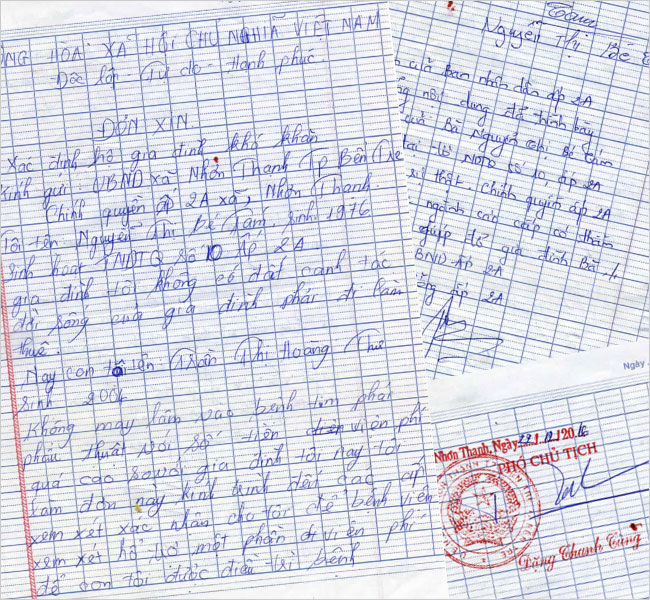 ỘNG HÒA XÃ HỘI CHỦ NGHĨA VIỆT NAM
Độc lập - Tự do - Hạnh phúc.
ĐƠN XIN.
Xác định hộ gia đình khó khăn
Kính gửi: UBND xã Nhơn Thạnh TP Bến Tre
Chính quyền ấp 2A xã, Nhơn Thạnh.
Tôi tên: Nguyễn Thị Bé Tám. Sinh. 1976
Sinh hoạt TNDTQ Số 10 ấp 2A.
gia đình tôi không có đất canh tác
đời sống của gia đình phải đi làm
thuê.
Nay con tôi tên: Trần Thị Hoàng Thư
Sinh 2004
Không may lâm vào bệnh tim phải
phẩu thuật với số tiền viện phí
quá cao so với gia đình tôi nay tôi
làm đơn này kính trình đến các cấp
xem xét xác nhận cho tôi để bệnh viện
xem xét hổ trợ một phần viện phí
để con tôi được điều trị bệnh
Tám
Nguyễn Thị Bé
của Ban nhân dân ấp 2A
nội dung đã trình bày
Bà Nguyễn Thị Bé Tám
tại tổ NDTQ số 10, ấp 2A
sự thật. Chính quyền ấp 2A
ngành các cấp có thẩm
giúp đỡ gia đình Bà ./.
BND ấp 2A
ấp 2A
Ngày
Nhơn Thạnh, Ngày 29/12/2016
PHÓ CHỦ TỊCH
Đặng Thanh Tùng